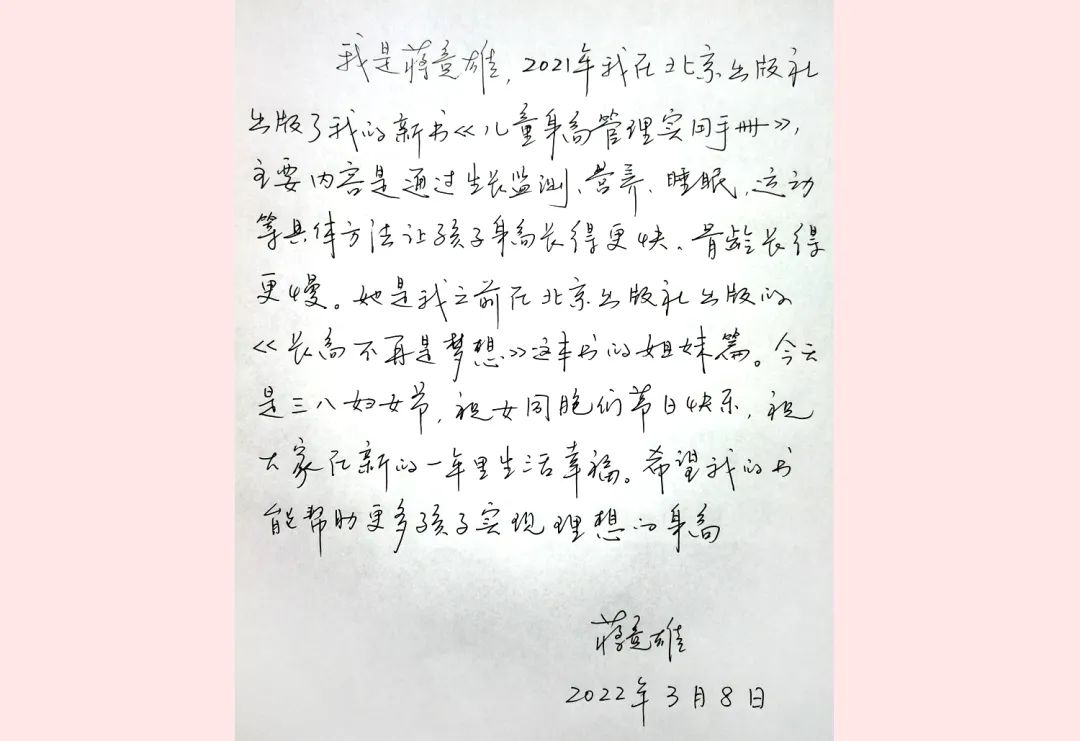 我是蒋竞雄，2021年我在北京出版社
出版了我的新书《儿童身高管理实用手册》，
主要内容是通过生长监测、营养、睡眠、运动
等具体方法让孩子身高长得更快、骨龄长得
更慢。她是我之前在北京出版社出版的
《长高不再是梦想》这本书的姐妹篇。今天
是三八妇女节，祝女同胞们节日快乐，祝
大家在新的一年里生活幸福。希望我的书
能帮助更多孩子实现理想的身高
蒋竞雄
2022年3月8日